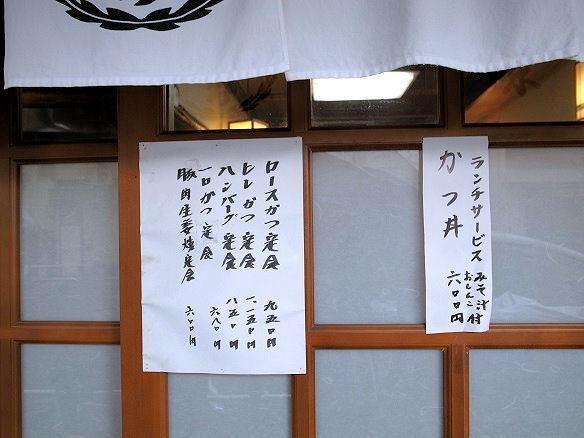 ランチサービス
かつ丼
みそ汁
おしんこ付
六〇〇円
ロースかつ定食 九五〇円
ヒレかつ定食 一、一五〇円
ハンバーグ定食 八五〇円
一口かつ定食 六八〇円
豚肉生姜焼定食 六〇〇円